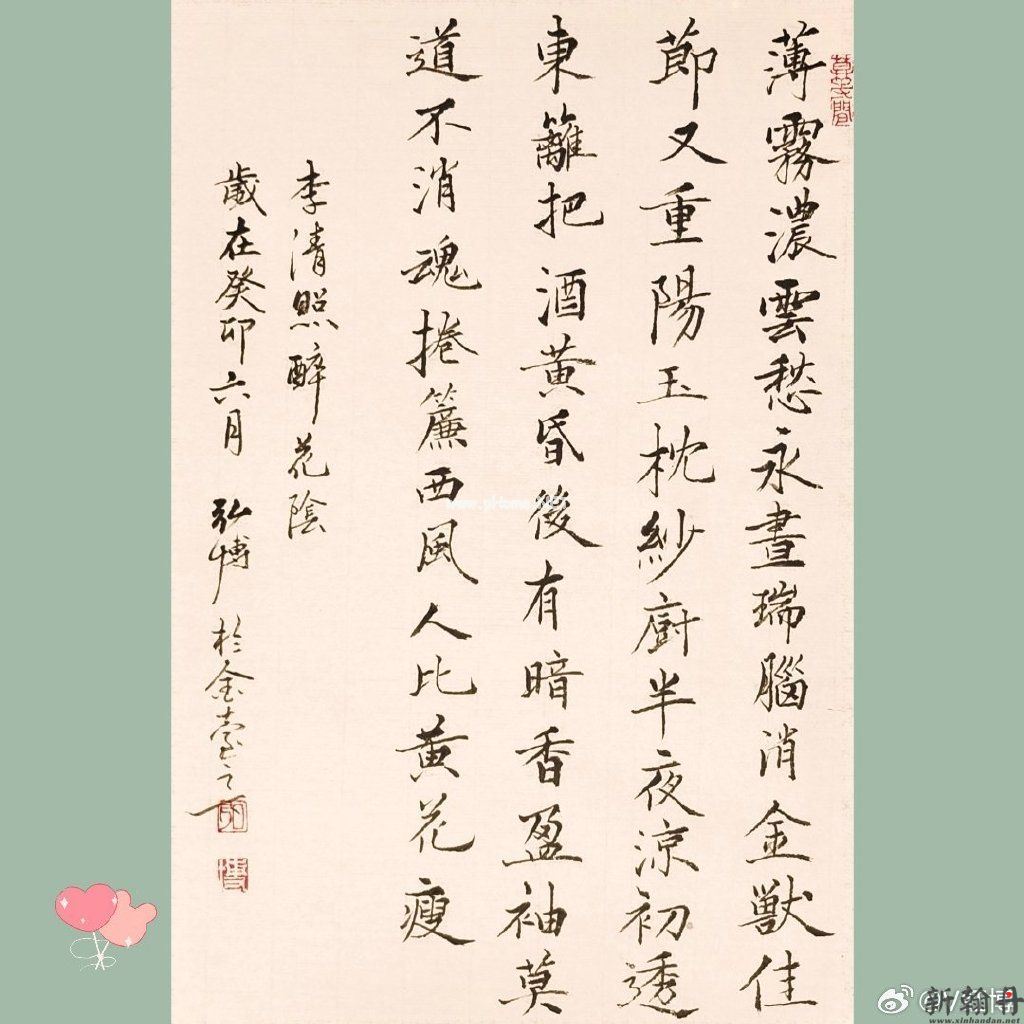 薄霧濃雲愁永晝瑞腦消金獸佳
節又重陽玉枕紗廚半夜涼初透
東籬把酒黃昏後有暗香盈袖莫
道不消魂捲簾西風人比黃花瘦
李清照醉花陰
歲在癸卯六月 弘博 於金臺之
新翰丹
www.xinhandan.net